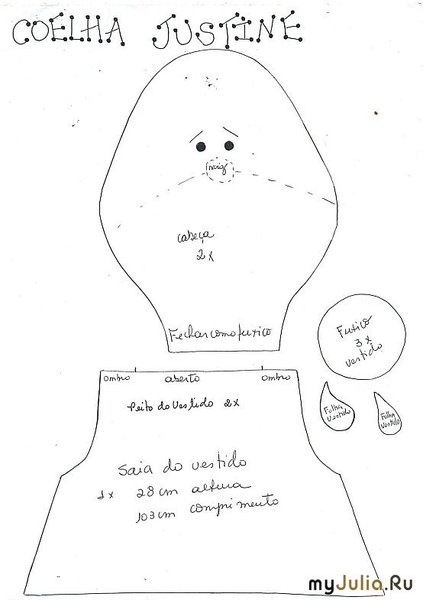 COELHA JUSTINE
nariz
cabeça
2x
Fechar como fuxico
Fuxico
3x
vestido
ombro aberto ombro
Peito do vestido 2x
Folha
vestido
Folha
vestido
Saia do vestido
1x 28cm altura
103cm comprimento
myJulia.Ru